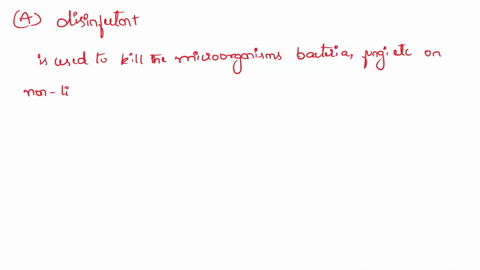 (A) disinfectant
is used to kill the microorganisms bacteria, fungi etc on
non-li